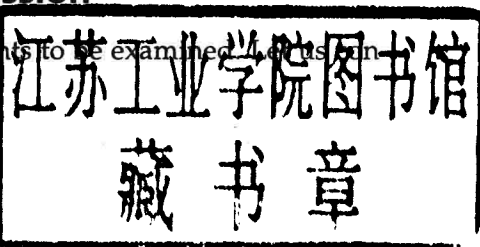 ssion
nts to be examined. Let us con
江苏工业学院图书馆
藏书章